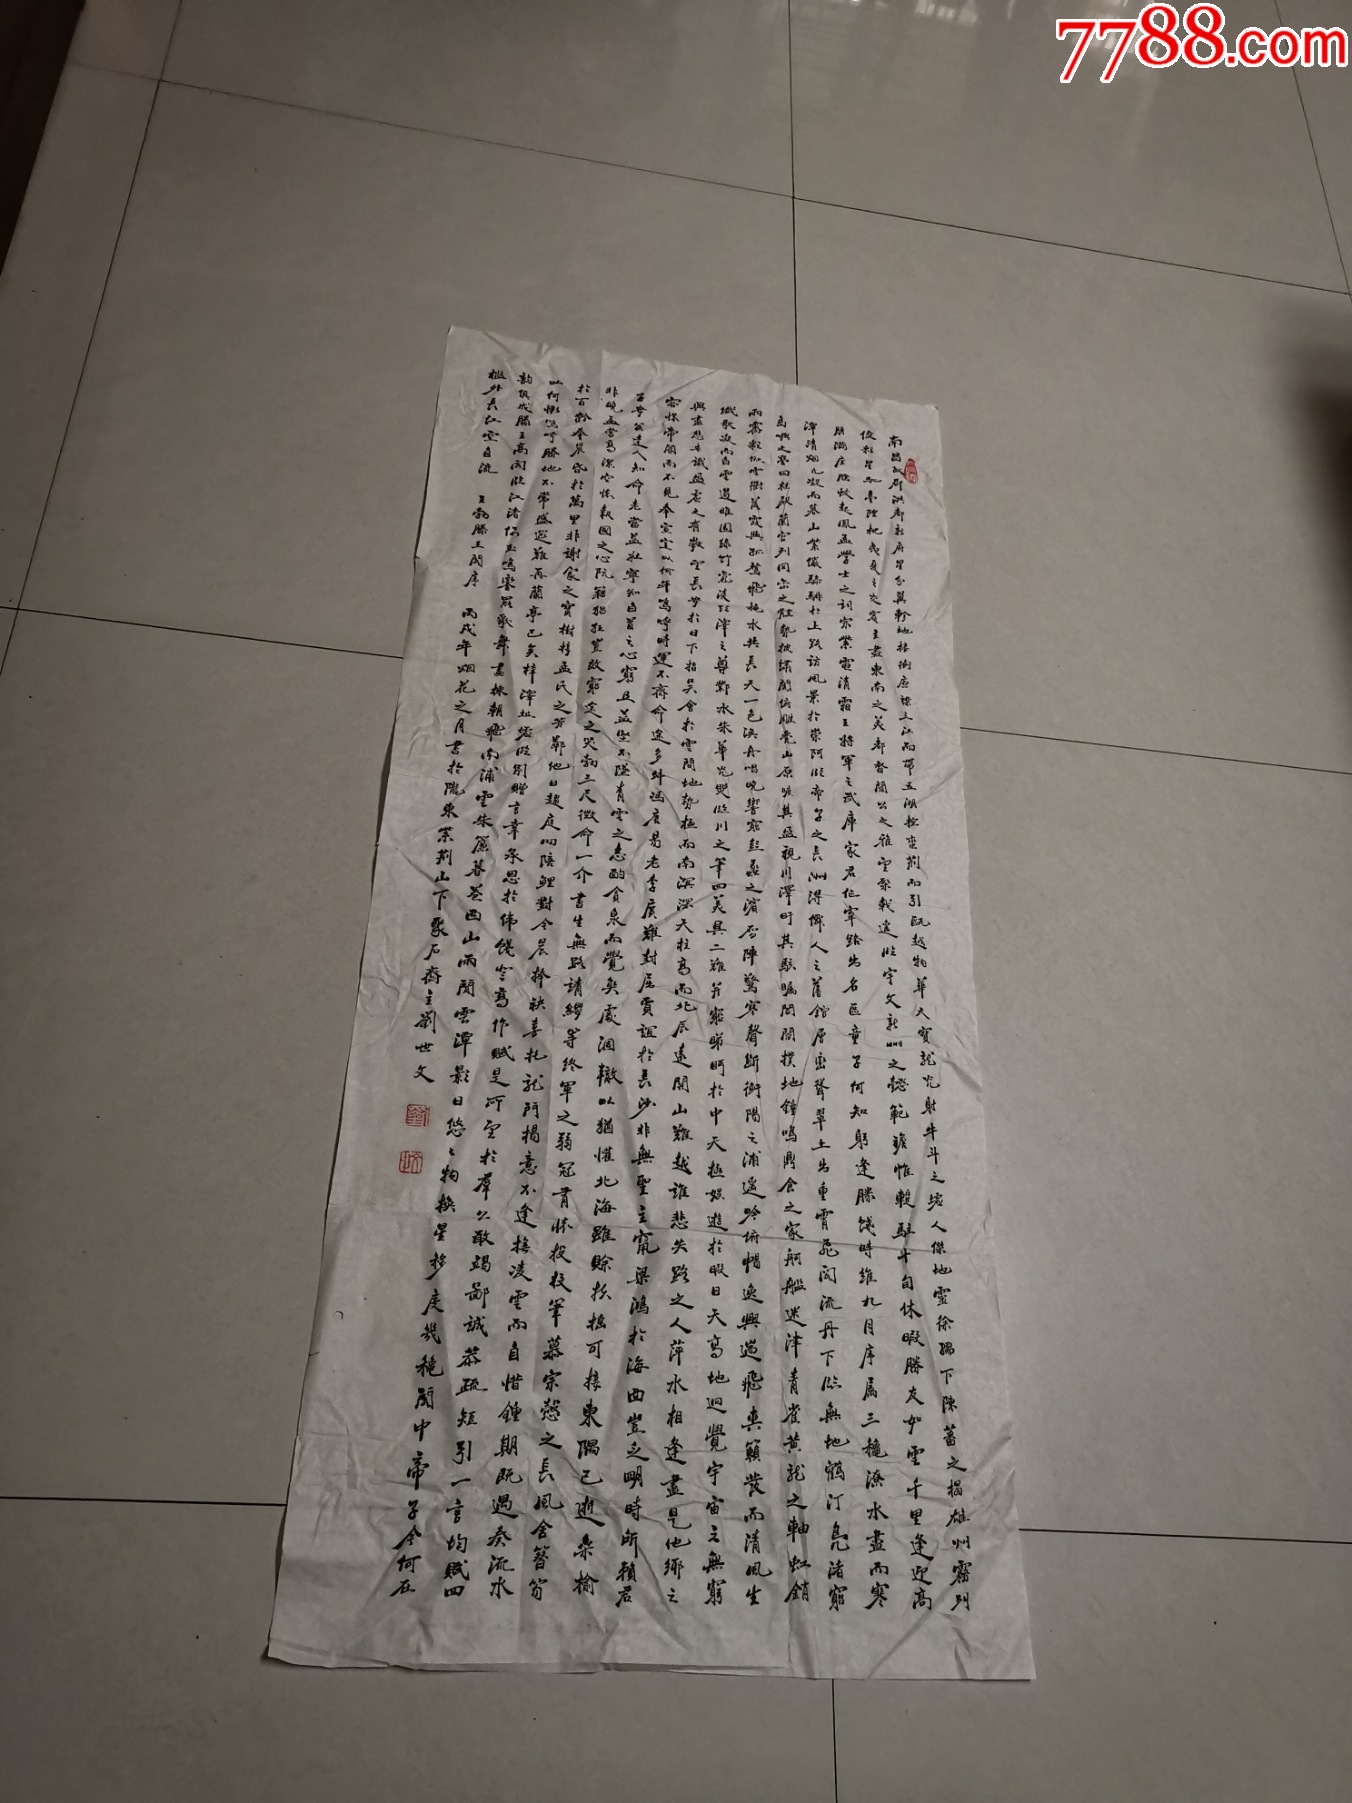 南昌故郡洪都新府星分翼軫地接衡廬襟三江而帶五湖控蠻荊而引甌越物華天寶龍光射牛斗之墟人傑地靈徐孺下陳蕃之榻雄州霧列
俊彩星馳臺隍枕夷夏之交賓主盡東南之美都督閻公之雅望棨戟遙臨宇文新州之懿範襜帷暫駐十旬休暇勝友如雲千里逢迎高
朋滿座騰蛟起鳳孟學士之詞宗紫電清霜王將軍之武庫家君作宰路出名區童子何知躬逢勝餞時維九月序屬三穐潦水盡而寒
潭清烟光凝而暮山紫儼驂騑於上路訪風景於崇阿臨帝子之長洲得仙人之舊館層巒聳翠上出重霄飛閣流丹下臨無地鶴汀鳧渚窮
島嶼之縈回桂殿蘭宮列岡巒之體勢披繡闥俯雕甍山原曠其盈視川澤盱其駭矚閭閻撲地鐘鳴鼎食之家舸艦迷津青雀黃龍之軸虹銷
雨霽彩徹雲衢落霞與孤鶩飛秋水共長天一色漁舟唱晚響窮彭蠡之濱雁陣驚寒聲斷衡陽之浦遙吟俯暢逸興遄飛爽籟發而清風生
纖歌凝而白雲遏睢園綠竹氣凌彭澤之尊鄴水朱華光照臨川之筆四美具二難并窮睇眄於中天極娛遊於暇日天高地迥覺宇宙之無窮
興盡悲來識盈虛之有數望長安於日下指吳會於雲間地勢極而南溟深天柱高而北辰遠關山難越誰悲失路之人萍水相逢盡是他鄉之
客懷帝閽而不見奉宣室以何年嗚呼時運不齊命途多舛馮唐易老李廣難封屈賈誼於長沙非無聖主竄梁鴻於海曲豈乏明時所賴君
子安貧達人知命老當益壯寧知白首之心窮且益堅不墜青雲之志酌貪泉而覺爽處涸轍以猶懽北海雖賒扶搖可接東隅已逝桑榆
非晚孟嘗高潔空懷報國之心阮籍猖狂豈效窮途之哭勃三尺微命一介書生無路請纓等終軍之弱冠有懷投筆慕宗愨之長風舍簪笏
於百齡奉晨昏於萬里非謝家之寶樹接孟氏之芳鄰他日趨庭叨陪鯉對今晨捧袂喜托龍門楊意不逢撫凌雲而自惜鍾期既遇奏流水
以何慚嗚呼勝地不常盛筵難再蘭亭已矣梓澤丘墟臨別贈言幸承恩於偉餞登高作賦是所望於群公敢竭鄙誠恭疏短引一言均賦四
韵俱成滕王高閣臨江渚佩玉鳴鸞罷歌舞畫棟朝飛南浦雲朱簾暮卷西山雨閑雲潭影日悠悠物換星移度幾穐閣中帝子今何在
檻外長江空自流 王勃滕王閣序 丙戌年烟花之月書於隴東紫荆山下聚石齋主劉世文
7788.com